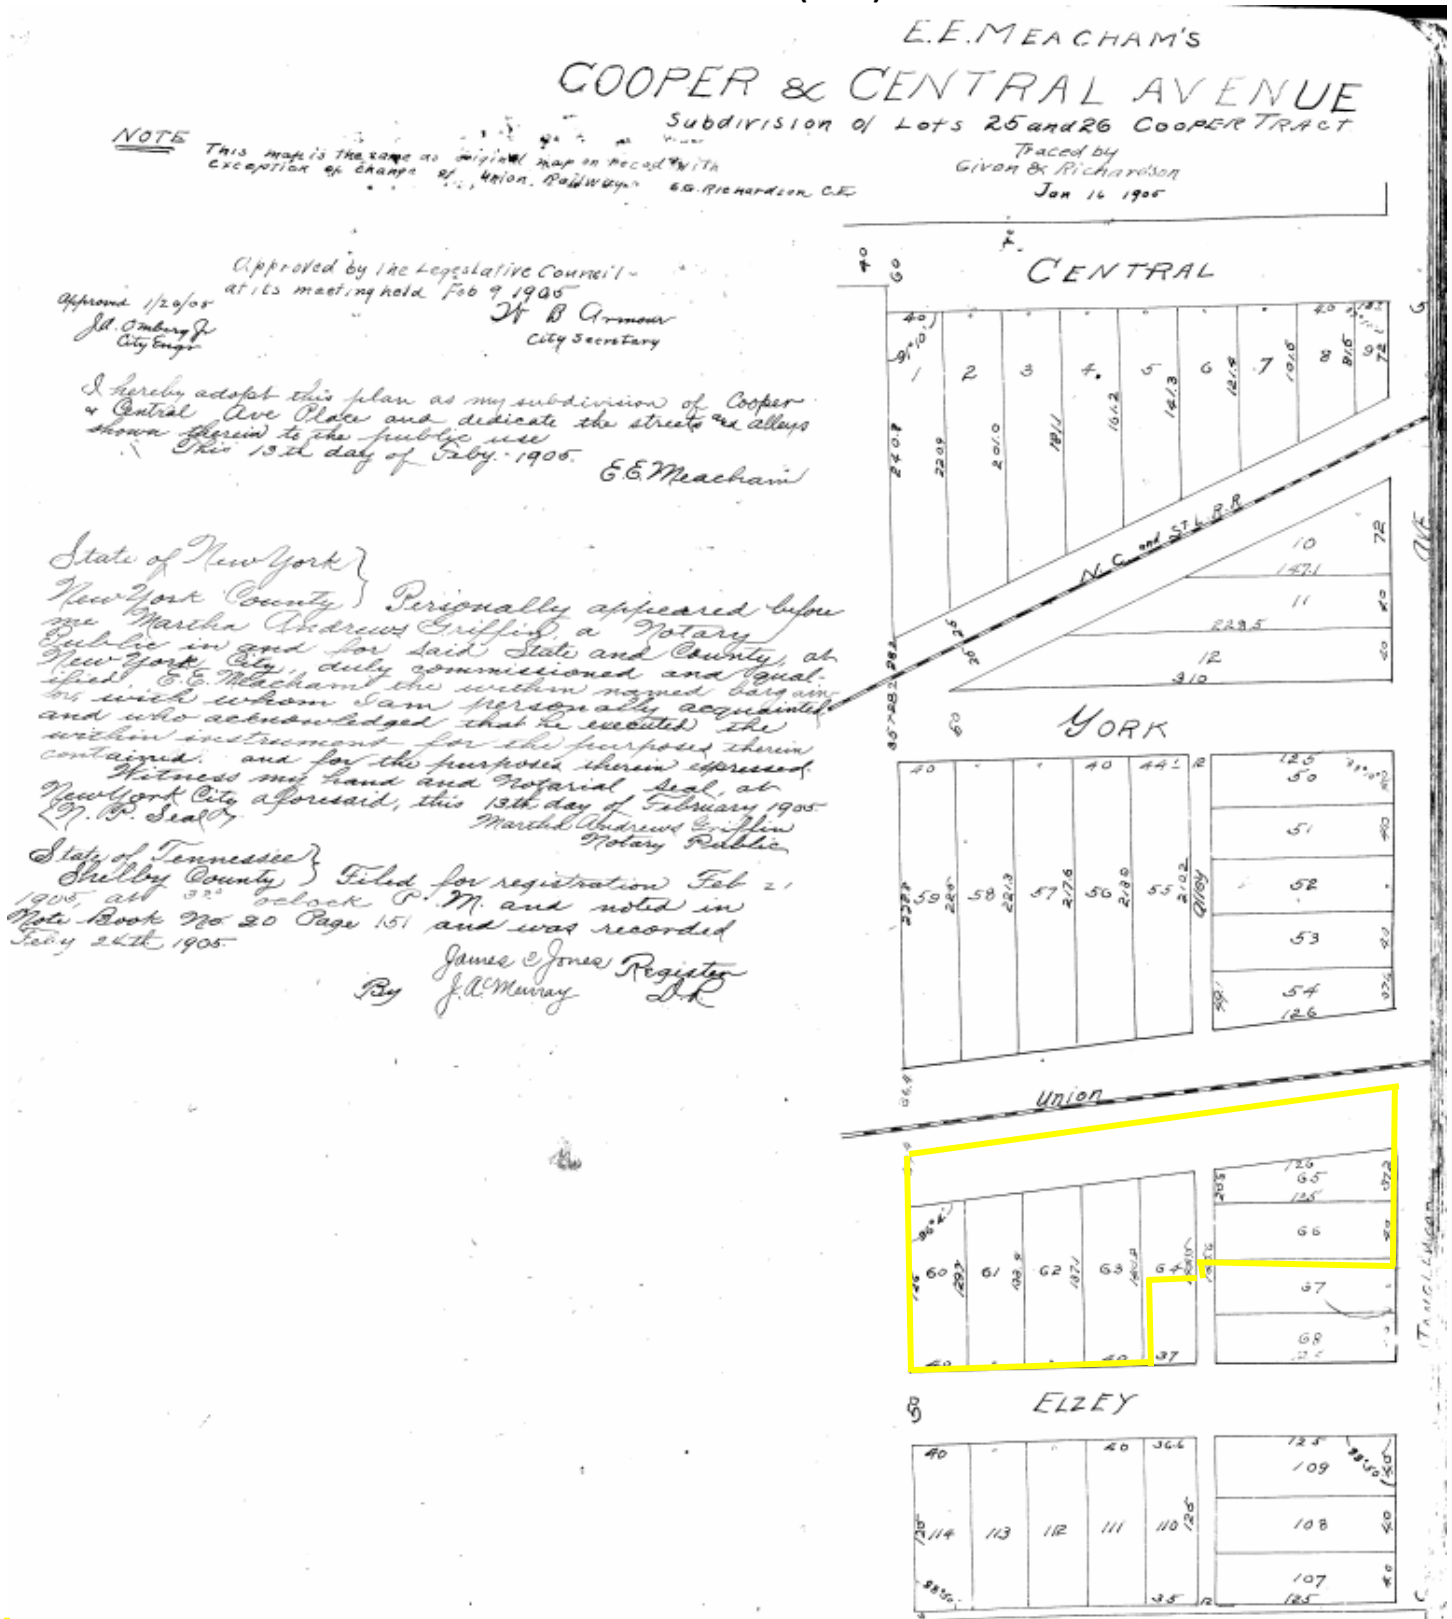 E.E. MEACHAM'S
COOPER & CENTRAL AVENUE
Subdivision of Lots 25 and 26 COOPER TRACT
Traced by
Givon & Richardson
Jan 16 1905
NOTE
This map is the same as original map on record with
exception of change of Union Railway E.G. Richardson C.E
Approved by the Legeslative Council
at its meeting held Feb 9 1905
W B Armour
City Secretary
Approved 1/20/05
J.A. Omberg Jr
City Engr
I hereby adopt this plan as my subdivision of Cooper
& Central Ave Place and dedicate the streets and alleys
shown therein to the public use
This 13th day of Feby. 1905.
E.E. Meacham
State of New York }
New York County } Personally appeared before
me Martha Andrews Griffin, a Notary
Public in and for said State and County, at
New York City, duly commissioned and qual-
ified E.E. Meacham the within named bargain-
or, with whom I am personally acquainted
and who acknowledged that he executed the
within instrument for the purposes therein
contained. and for the purposes therein expressed.
Witness my hand and Notarial Seal, at
New York City aforesaid, this 13th day of February 1905
(N. P. Seal)
Martha Andrews Griffin
Notary Public
State of Tennessee }
Shelby County } Filed for registration Feb 21
1905, at oclock P. M. and noted in
Note Book No 20 Page 151 and was recorded
Feby 24th 1905.
James Jones Register
By J.A. Murray D.R.
40 60
CENTRAL
40 40
1 2 3 4 5 6 7 8 9
240.8 220.9 201.0 181.1 161.2 141.3 121.4 101.5 81.5 72
N. C. and St. L. R.R
AVE
10 72
147.1
11 40
228.5
12 40
310
26 26
60
YORK
40 40 44 12
59 58 57 56 55
225 221.3 217.6 213.0 210.2
Alley
125
50
51 40
52
53 40
54
126
Union
126
65
125
66 40
67
68
60 61 62 63 64
40 40 37
50
ELZEY
40 40 36.6
114 113 112 111 110
125 125
88°50'
35 12
125
109
88°50'
108 40
107 40
125